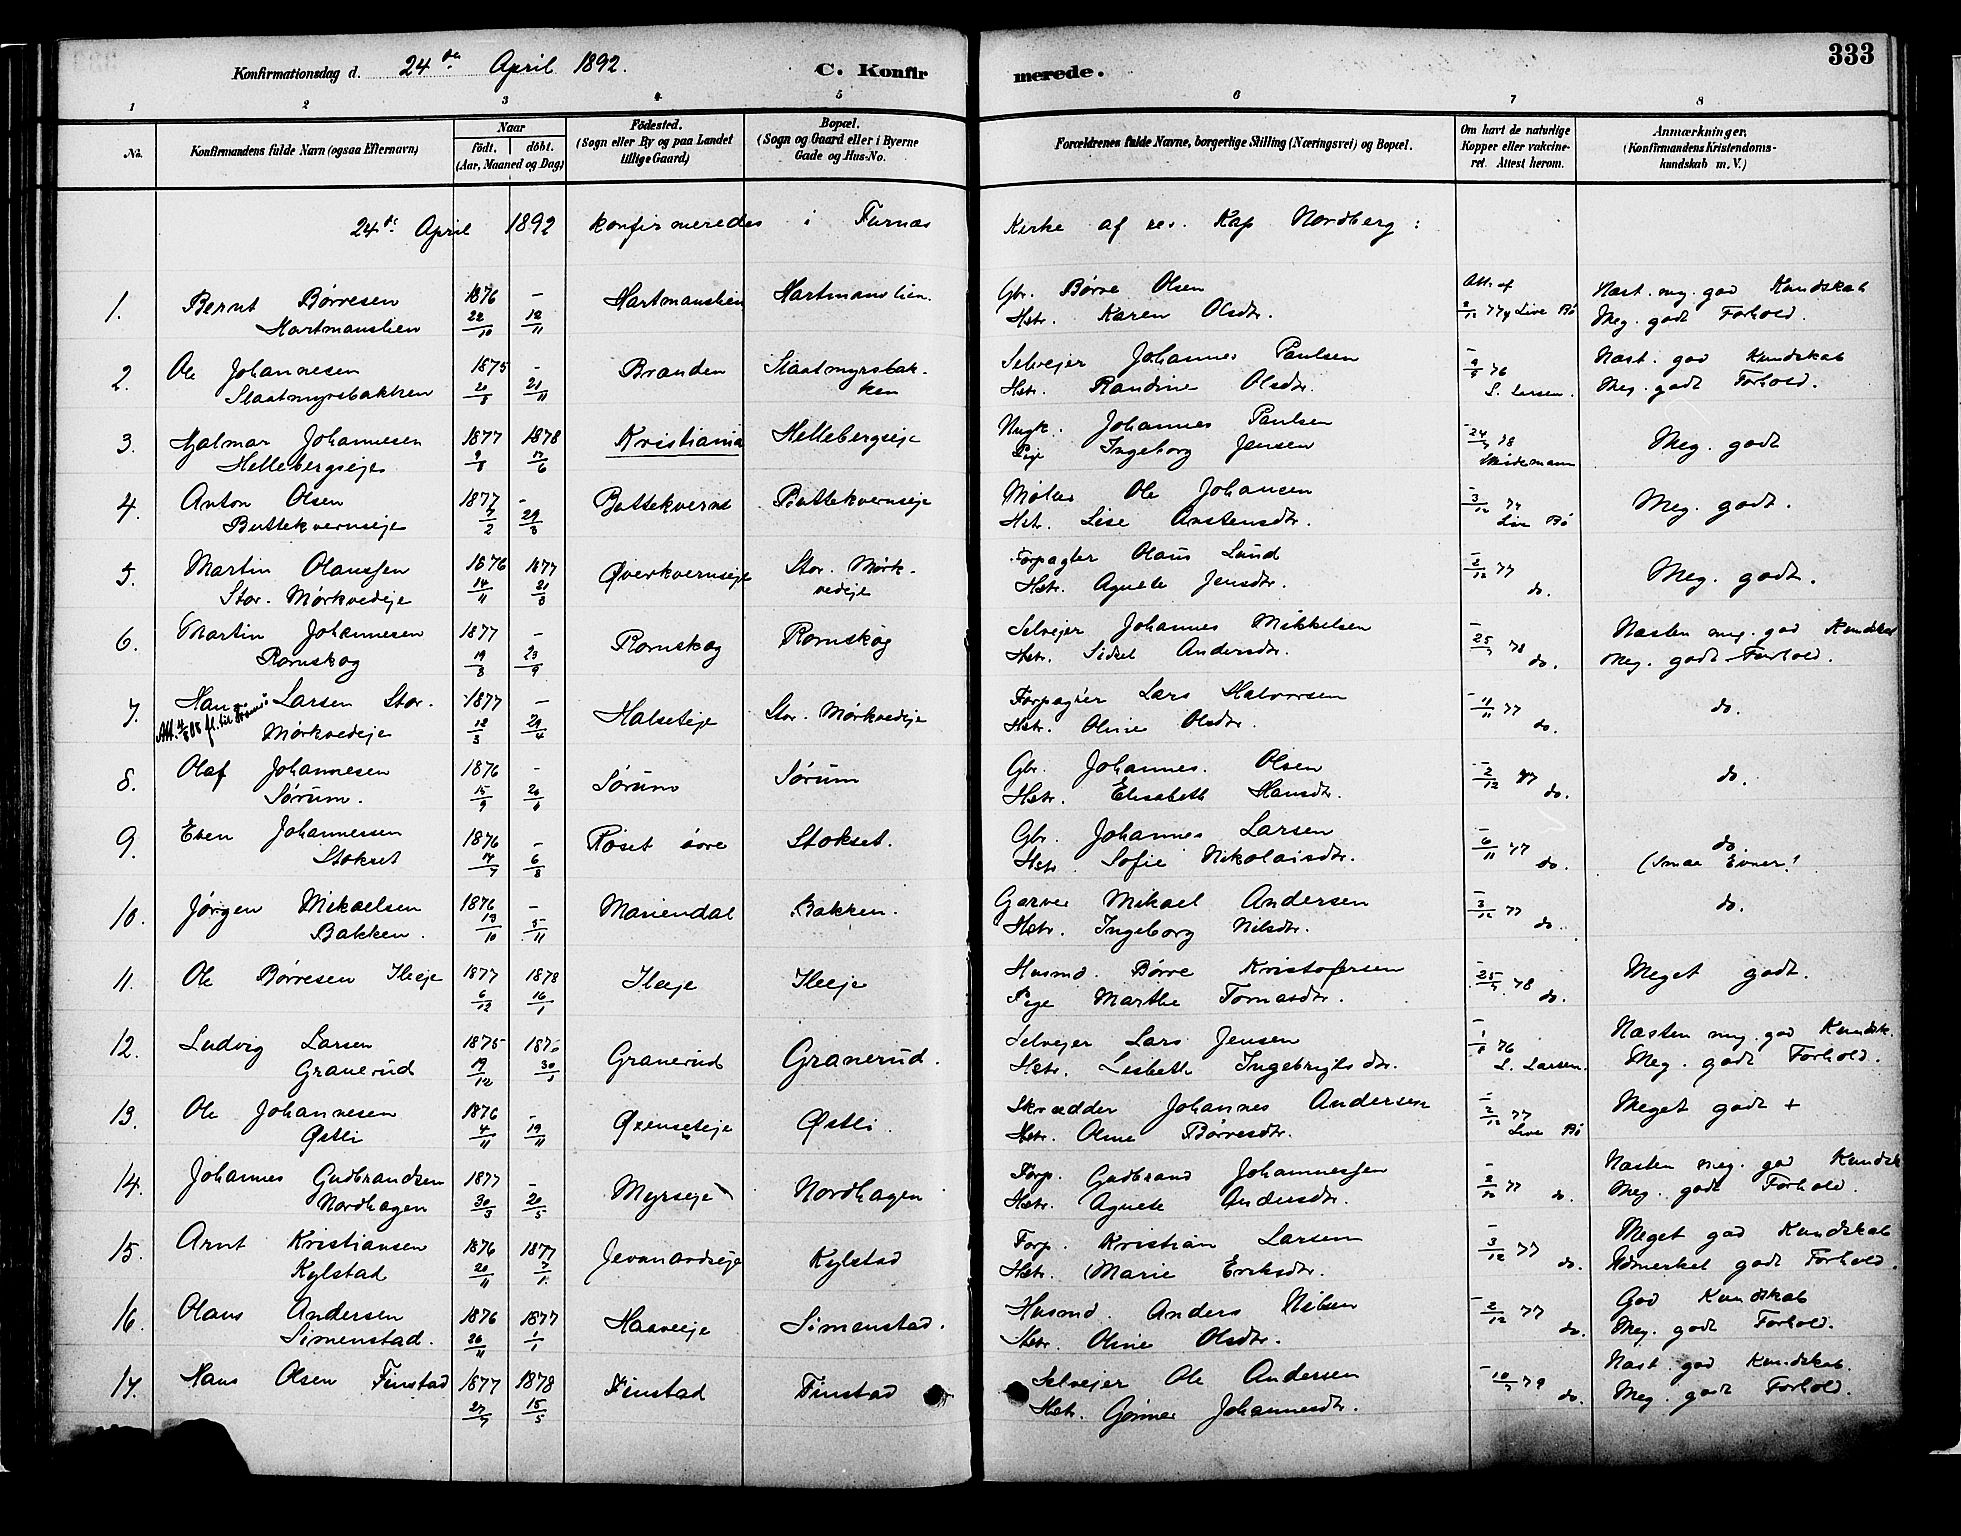 Konfirmationsdag d. 24de April 1892. C. Konfirmerede. 333
1 2 3 4 5 6 7 8
No. Konfirmandens fulde Navn (ogsaa Efternavn) Naar født. døbt. (Aar, Maaned og Dag) Födested. (Sogn eller By og paa Landet tillige Gaard) Bopæl. (Sogn og Gaard eller i Byerne Gade og Hus-No. Forældrenes fulde Navne, borgerlige Stilling (Næringsvei) og Bopæl. Om havt de naturlige Kopper eller vakcineret. Attest herom. Anmærkninger. (Konfirmandens Kristendomskundskab m. V.)
24de April 1892 konfirmeredes i Furnæs Kirke af res. Kap Nordberg:
1. Bernt Børresen 1876 - Hartmanslien Hartmanslien. Gbr. Børre Olsen Att. af Næst. mg. god Kundskab
Hartmanslien 22/10 12/11 Hstr. Karen Olsdr. 2/12 77 Live Bø Meg. godt Forhold.
2. Ole Johannesen 1875 - Branden Slaatmyrsbak- Selvejer Johannes Paulsen 76 Næst. god Kundskab
Slaatmyrsbakken 20/8 21/11 ken Hstr. Randine Olsdr. L. Larsen. Meg. godt Forhold.
3. Hjalmar Johannesen 1877 1878 Kristiania Hellebergseje Ungk. Johannes Paulsen 78 Meg. godt
Hellebergseje 9/8 17/6 Pige Ingeborg Jensen
4. Anton Olsen 1877 - Buttekverns Buttekvernseje Møller Ole Johansen 3/12 77 Meg. godt.
Buttekvernseje 7/2 29/3 Hstr. Lise Anstensdr. Live Bø
5. Martin Olaussen 1876 1877 Øverkvernseje Stor. Mørk- Forpagter Olaus Lund 2/12 77 Meg. godt.
Stor. Mørkvedeje 14/11 21/3 vedeje Hstr. Agnete Jensdr. do.
6. Martin Johannesen 1877 - Romskog Romskog Selvejer Johannes Mikkelsen 78 Næsten mg. god Kundskab
Romskog 19/8 23/9 Hstr. Sidsel Andersdr. do. Meg. godt Forhold.
7. Hans Larsen Stor. 1877 - Halseteje Stor. Mørkvedeje Forpagter Lars Halvorsen 11/11 77 do.
Mørkvedeje 18/3 29/4 Hstr. Oline Olsdr. do.
8. Olaf Johannesen 1876 - Sørum Sørum Gbr. Johannes. Olsen 2/12 77 do.
Sørum. 15/9 Hstr. Elisabeth Hansdr. do.
9. Even Johannessen 1876 - Røset øvre Stokset. Gbr. Johannes Larsen 6/11 77 do.
Stokset 17/7 6/8 Hstr. Sofie Nikolaisdr. do. (Smaa Evner!
10. Jørgen Mikaelsen 1876 - Mariendal Bakken. Garver Mikael Andersen 3/12 77 do.
Bakken. 13/10 5/11 Hstr. Ingeborg Nilsdr. do.
11. Ole Børresen Ileeje 1877 1878 Ileeje Ileeje Husmd. Børre Kristofersen 78 Meget godt.
6/12 16/1 Pige Marthe Tomasdr. do.
12. Ludvig Larsen 1875 Granerud Granerud. Selvejer Lars Jensen 76 Næsten mg. god Kundsk.
Granerud 19/12 Hstr. Lisbeth Ingebrigtsdr. L. Larsen. Meg. godt Forhold.
13. Ole Johannesen 1876 - Østli. Skrædder Johannes Andersen 2/12 77 Meget godt +
Østli 4/11 19/11 Hstr. Oline Børresdr. Live Bø
14. Johannes Gudbrandsen 1877 - Myrseje Nordhagen Forp. Gudbrand Johannessen 77 Næsten meg. god Kundsk
Nordhagen 30/3 20/5 Hstr. Agnete Andersdr. do. Meg. godt Forhold.
15. Arnt Kristiansen 1876 1877 Jevanordseje Kylstad Forp. Kristian Larsen 3/12 77 Meget god Kundskab
Kylstad 20/11 7/1 Hstr. Marie Eriksdr. do. Udmerket godt Forhold.
16. Olaus Andersen 1876 1877 Haaveeje Simenstad. Husmd. Anders Nilsen 2/12 77 God Kundskab
Simenstad. 26/11 1/1 Hstr. Oline Olsdr. do. Meg. godt Forhold.
17. Hans Olsen Finstad 1877 1878 Finstad Finstad Selvejer Ole Andersen 79 Næst. god Kundskab.
27/7 15/5 Hstr. Johannesdr. do. Meg. godt Forhold.